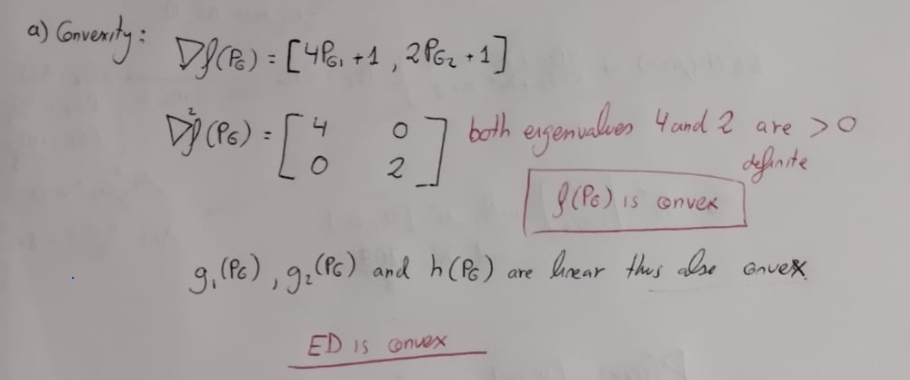 a) Convexity: ∇f(P_G) = [4P_G1 + 1 , 2P_G2 + 1]
∇²f(P_G) = [4 0; 0 2] both eigenvalues 4 and 2 are > 0
definite
f(P_G) is convex
g₁(P_G), g₂(P_G) and h(P_G) are linear thus also convex
ED is convex